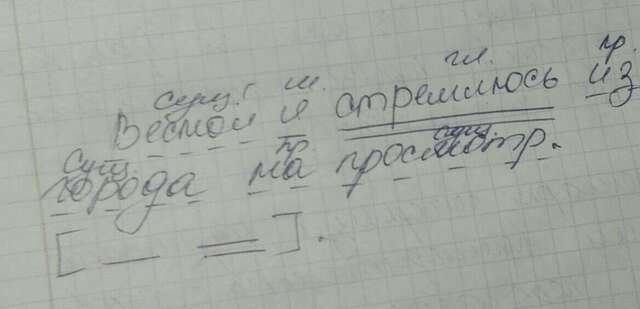 сущ. м. гл. пр.
Весной я стремлюсь из
сущ. пр сущ.
города на просмотр.
[ — = ].